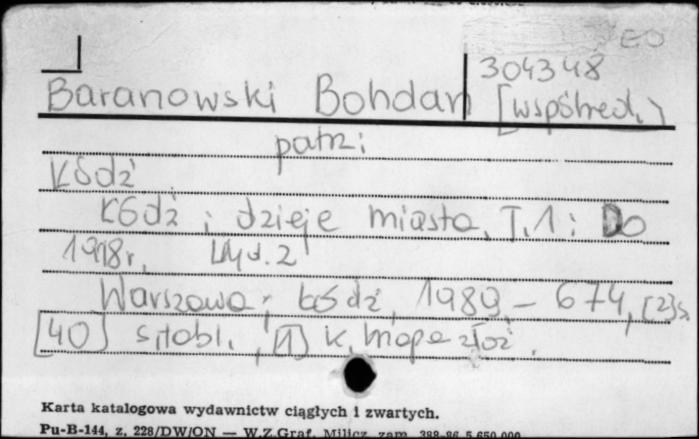 EO
304348
Baranowski Bohdan [współred.)
patrz:
Łódź
Łódź : dzieje miasta. T. 1 : Do
1918 r. Wyd. 2
Warszawa ; Łódź, 1989. – 674, [2] s.
[40] s. tabl., [1] k. mapa złoż.
Karta katalogowa wydawnictw ciągłych i zwartych.
Pu-B-144, z. 228/DW/ON — W.Z.Graf. Milicz, zam. 388-86 5.650.000